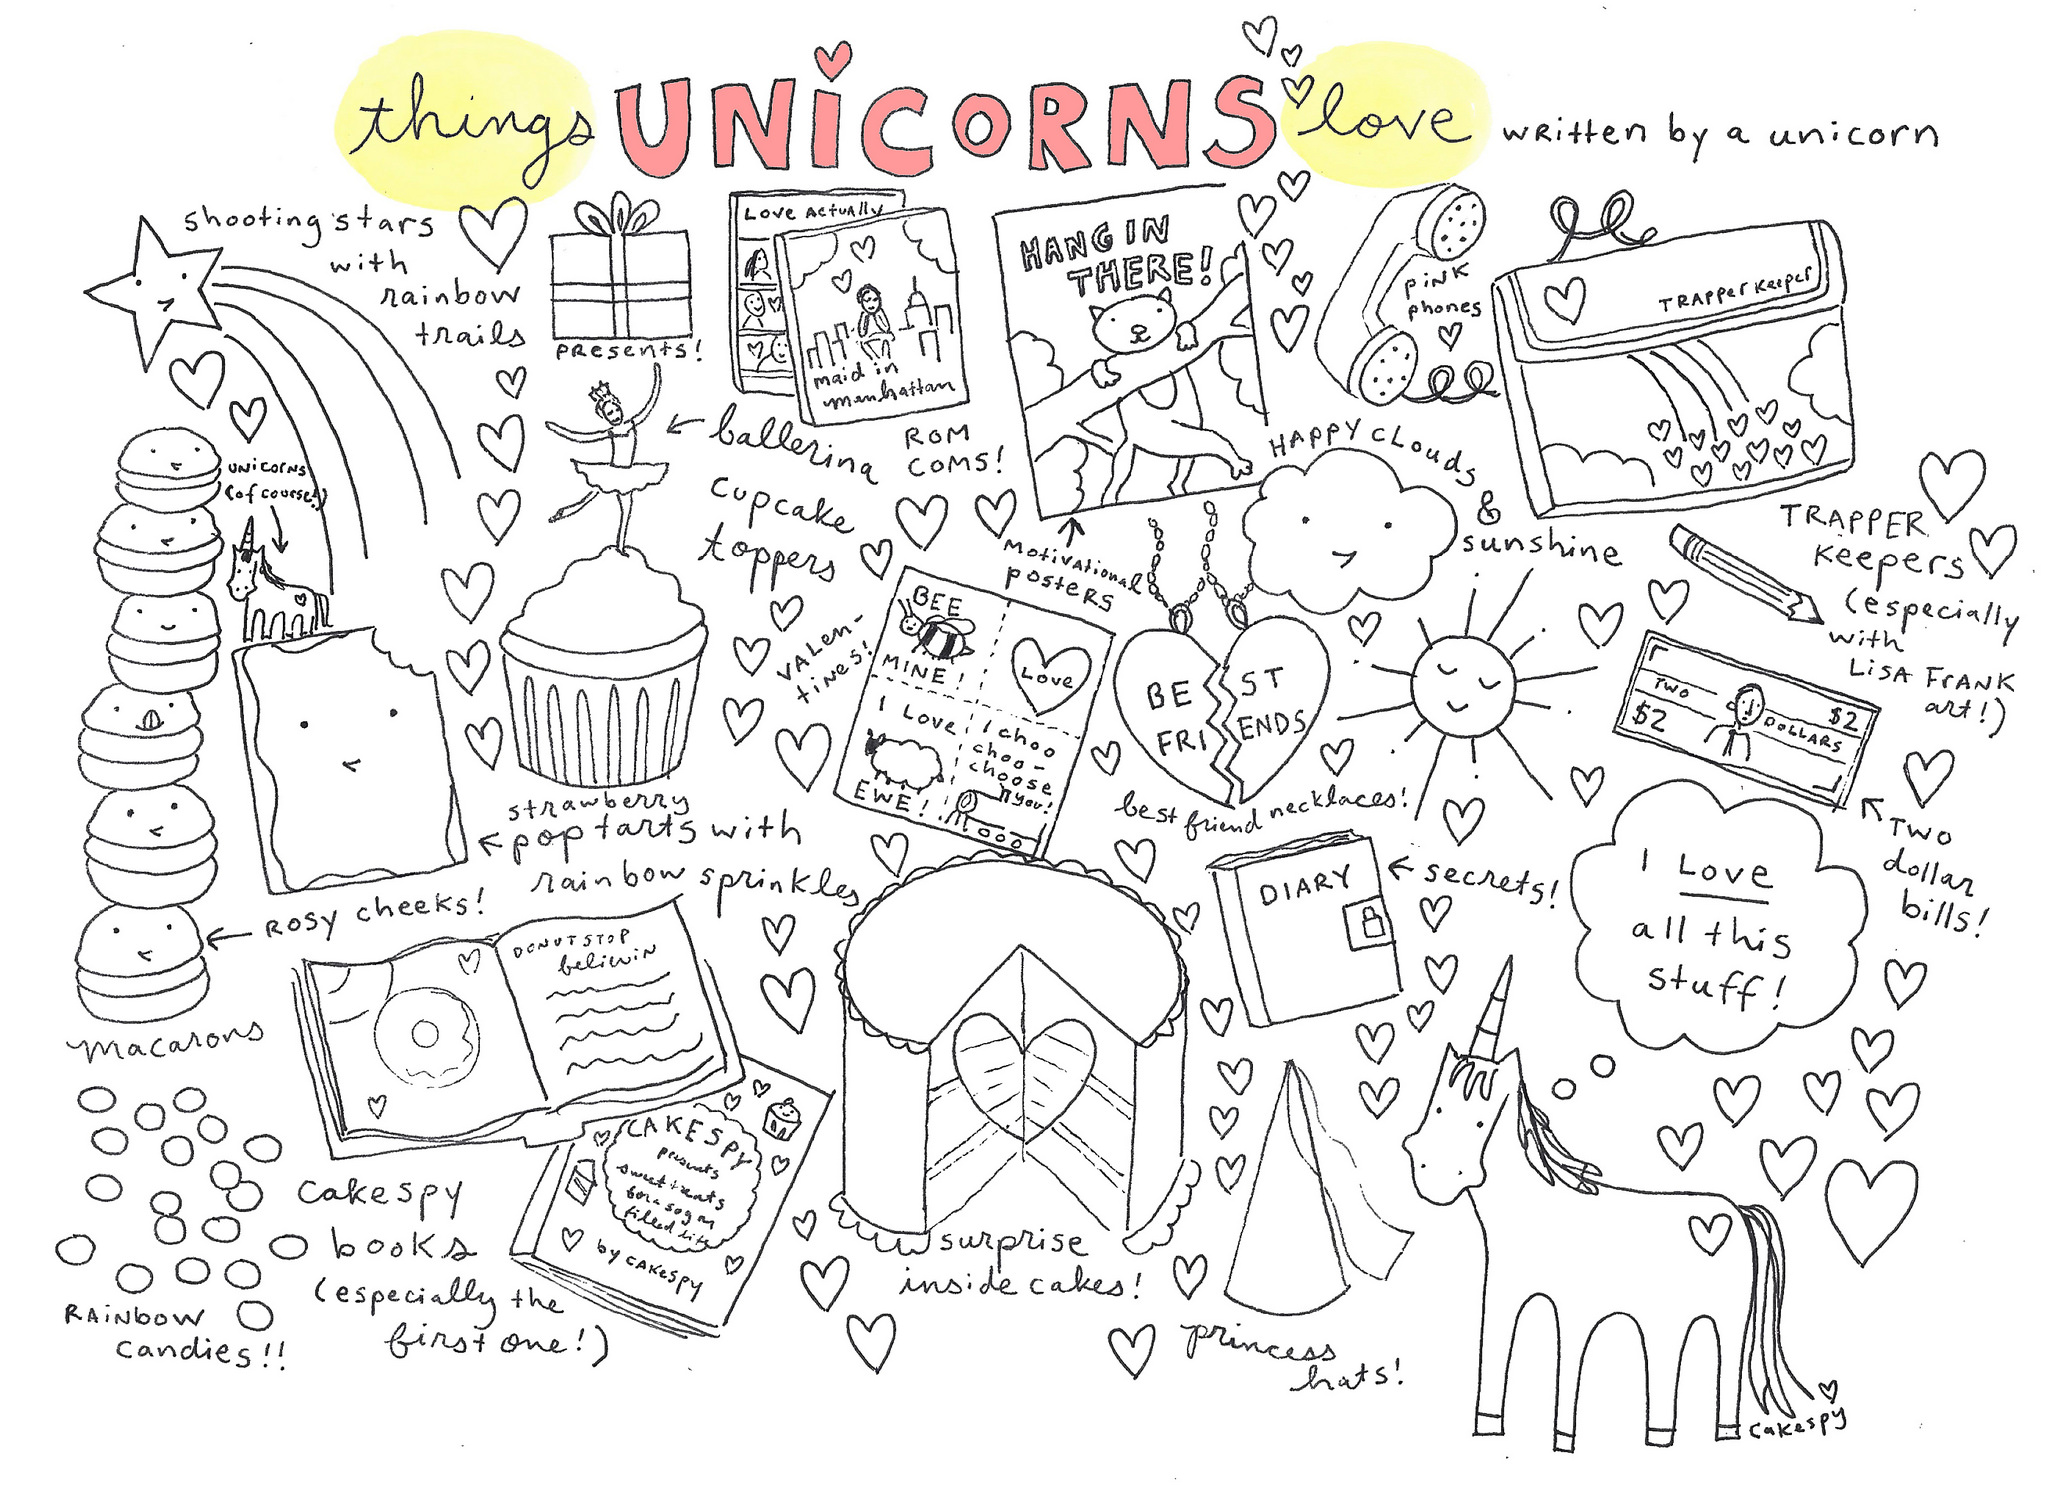 things UNiCORNS love written by a unicorn
shooting stars
with
rainbow
trails
PRESENTS!
LOVE ACTUALLY
maid in
manhattan
ROM
COMS!
HANG IN
THERE!
MOTIVATIONAL
posters
PINK
phones
TRAPPER KEEPER
TRAPPER
KEEPERS
(especially
with
LISA FRANK
art!)
UNICORNS
(of course!)
ballerina
cupcake
toppers
HAPPY CLOUDS
&
sunshine
VALEN-
TINES!
BEE
MINE!
LOVE
I LOVE
EWE!
I choo
choo-
choose
you!
BE ST
FRI ENDS
best friend necklaces!
TWO
$2
DOLLARS
$2
TWO
dollar
bills!
strawberry
pop tarts with
rainbow sprinkles
ROSY cheeks!
macarons
DONUT STOP
beliwin
DIARY
secrets!
I LOVE
all this
stuff!
CAKESPY
presents
sweet treats
for a sugar
filled life
by CAKESPY
cakespy
books
(especially the
first one!)
RAINBOW
candies!!
surprise
inside cakes!
princess
hats!
cakespy